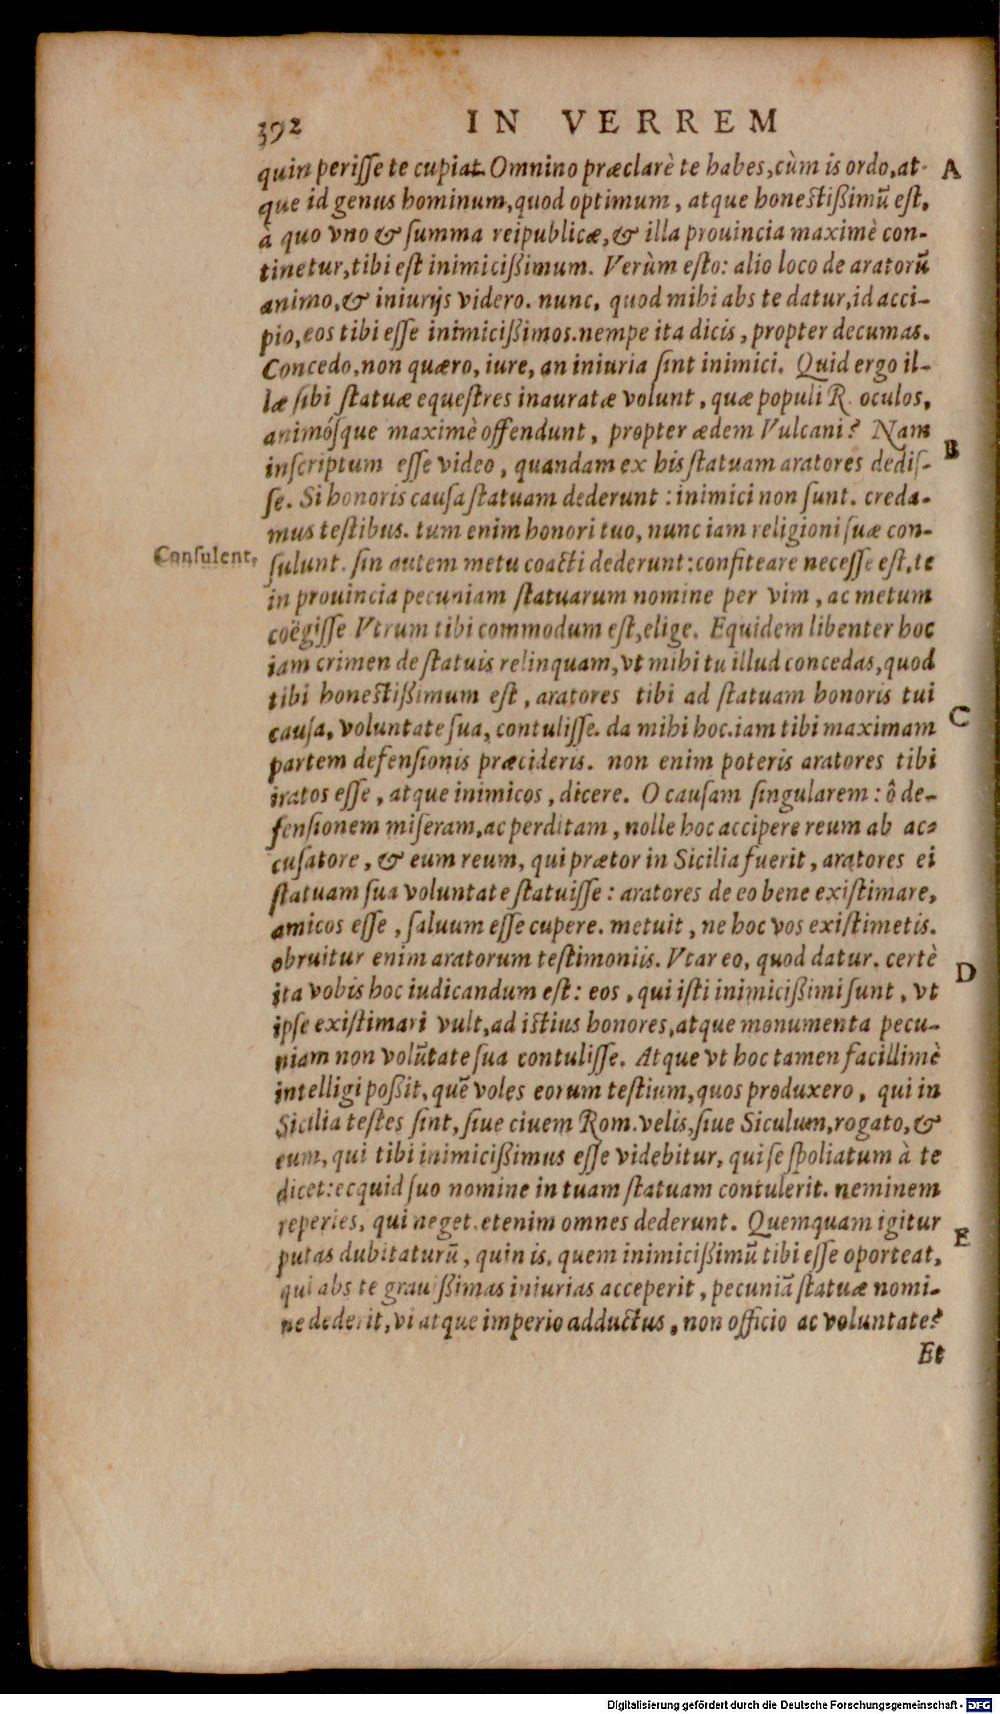 392 IN VERREM
quin perisse te cupiat. Omnino præclarè te habes, cùm is ordo, at- A
que id genus hominum, quod optimum, atque honestißimũ est,
à quo vno & summa reipublicæ, & illa prouincia maximè con-
tinetur, tibi est inimicißimum. Verùm esto: alio loco de aratorũ
animo, & iniurijs videro. nunc, quod mihi abs te datur, id acci-
pio, eos tibi esse inimicißimos. nempe ita dicis, propter decumas.
Concedo, non quæro, iure, an iniuria sint inimici. Quid ergo il-
læ sibi statuæ equestres inauratæ volunt, quæ populi R. oculos,
animósque maximè offendunt, propter ædem Vulcani? Nam
inscriptum esse video, quandam ex his statuam aratores dedis- B
se. Si honoris causa statuam dederunt: inimici non sunt. creda-
mus testibus. tum enim honori tuo, nunc iam religioni suæ con-
Consulent, sulunt. sin autem metu coacti dederunt: confiteare necesse est, te
in prouincia pecuniam statuarum nomine per vim, ac metum
coëgisse Vtrum tibi commodum est, elige. Equidem libenter hoc
iam crimen de statuis relinquam, vt mihi tu illud concedas, quod
tibi honestißimum est, aratores tibi ad statuam honoris tui
causa, voluntate sua, contulisse. da mihi hoc. iam tibi maximam C
partem defensionis præcideris. non enim poteris aratores tibi
iratos esse, atque inimicos, dicere. O causam singularem: ô de-
fensionem miseram, ac perditam, nolle hoc accipere reum ab ac-
cusatore, & eum reum, qui prætor in Sicilia fuerit, aratores ei
statuam sua voluntate statuisse: aratores de eo bene existimare,
amicos esse, saluum esse cupere. metuit, ne hoc vos existimetis.
obruitur enim aratorum testimoniis. Vtar eo, quod datur. certè
ita vobis hoc iudicandum est: eos, qui isti inimicißimi sunt, vt D
ipse existimari vult, ad istius honores, atque monumenta pecu-
niam non volũtate sua contulisse. Atque vt hoc tamen facillimè
intelligi poßit, quẽ voles eorum testium, quos produxero, qui in
Sicilia testes sint, siue ciuem Rom. velis, siue Siculum, rogato, &
eum, qui tibi inimicißimus esse videbitur, qui se spoliatum à te
dicet: ecquid suo nomine in tuam statuam contulerit. neminem
reperies, qui neget. etenim omnes dederunt. Quemquam igitur
putas dubitaturũ, quin is, quem inimicißimũ tibi esse oporteat, E
qui abs te grauißimas iniurias acceperit, pecuniã statuæ nomi-
ne dederit, vi atque imperio adductus, non officio ac voluntate?
Et
Digitalisierung gefördert durch die Deutsche Forschungsgemeinschaft - DFG